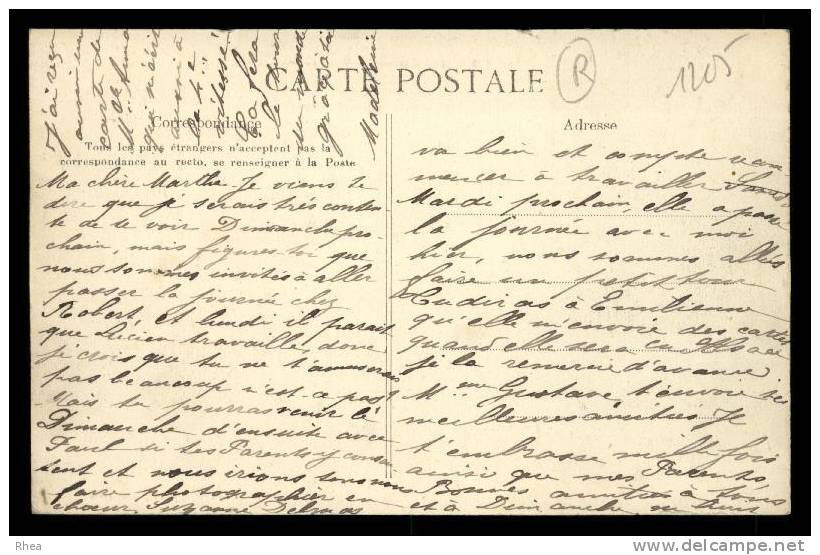 CARTE POSTALE
R
1205
Correspondance
Adresse
Tous les pays étrangers n'acceptent pas la
correspondance au recto, se renseigner à la Poste
Ma chère Marthe. Je viens te
dire que je serais très conten
te de te voir Dimanche pro-
chain, mais figures-toi que
nous sommes invités à aller
passer la journée chez
Robert, et lundi il parait
que Lucien travaille, donc
je crois que tu ne t'amuserais
pas beaucoup n'est-ce pas?
Mais tu pourras venir le
Dimanche d'ensuite avec
Paul si tes Parents y consen
tent et nous irions tous nous
faire photographier en
chœur, Suzanne Delmas
va bien et compte com-
mencer à travailler
Mardi prochain, elle a passé
la journée avec moi
hier, nous sommes allés
faire un petit tour
Tu diras à Emilienne
qu'elle m'envoie des cartes
quand elle sera en Alsace
je la remercie d'avance
Mme Gustave t'envoie ses
meilleures amitiés. Je
t'embrasse mille fois
ainsi que mes Parents
Bonnes amitiés à tous
et à Dimanche
J'ai reçu
aussi une
carte de
Melle
qui m'écrit
aussi à
vitesse
Ce sera
le tour
du monde
grapata
Madeleine
Rhea
http://www.delcampe.net